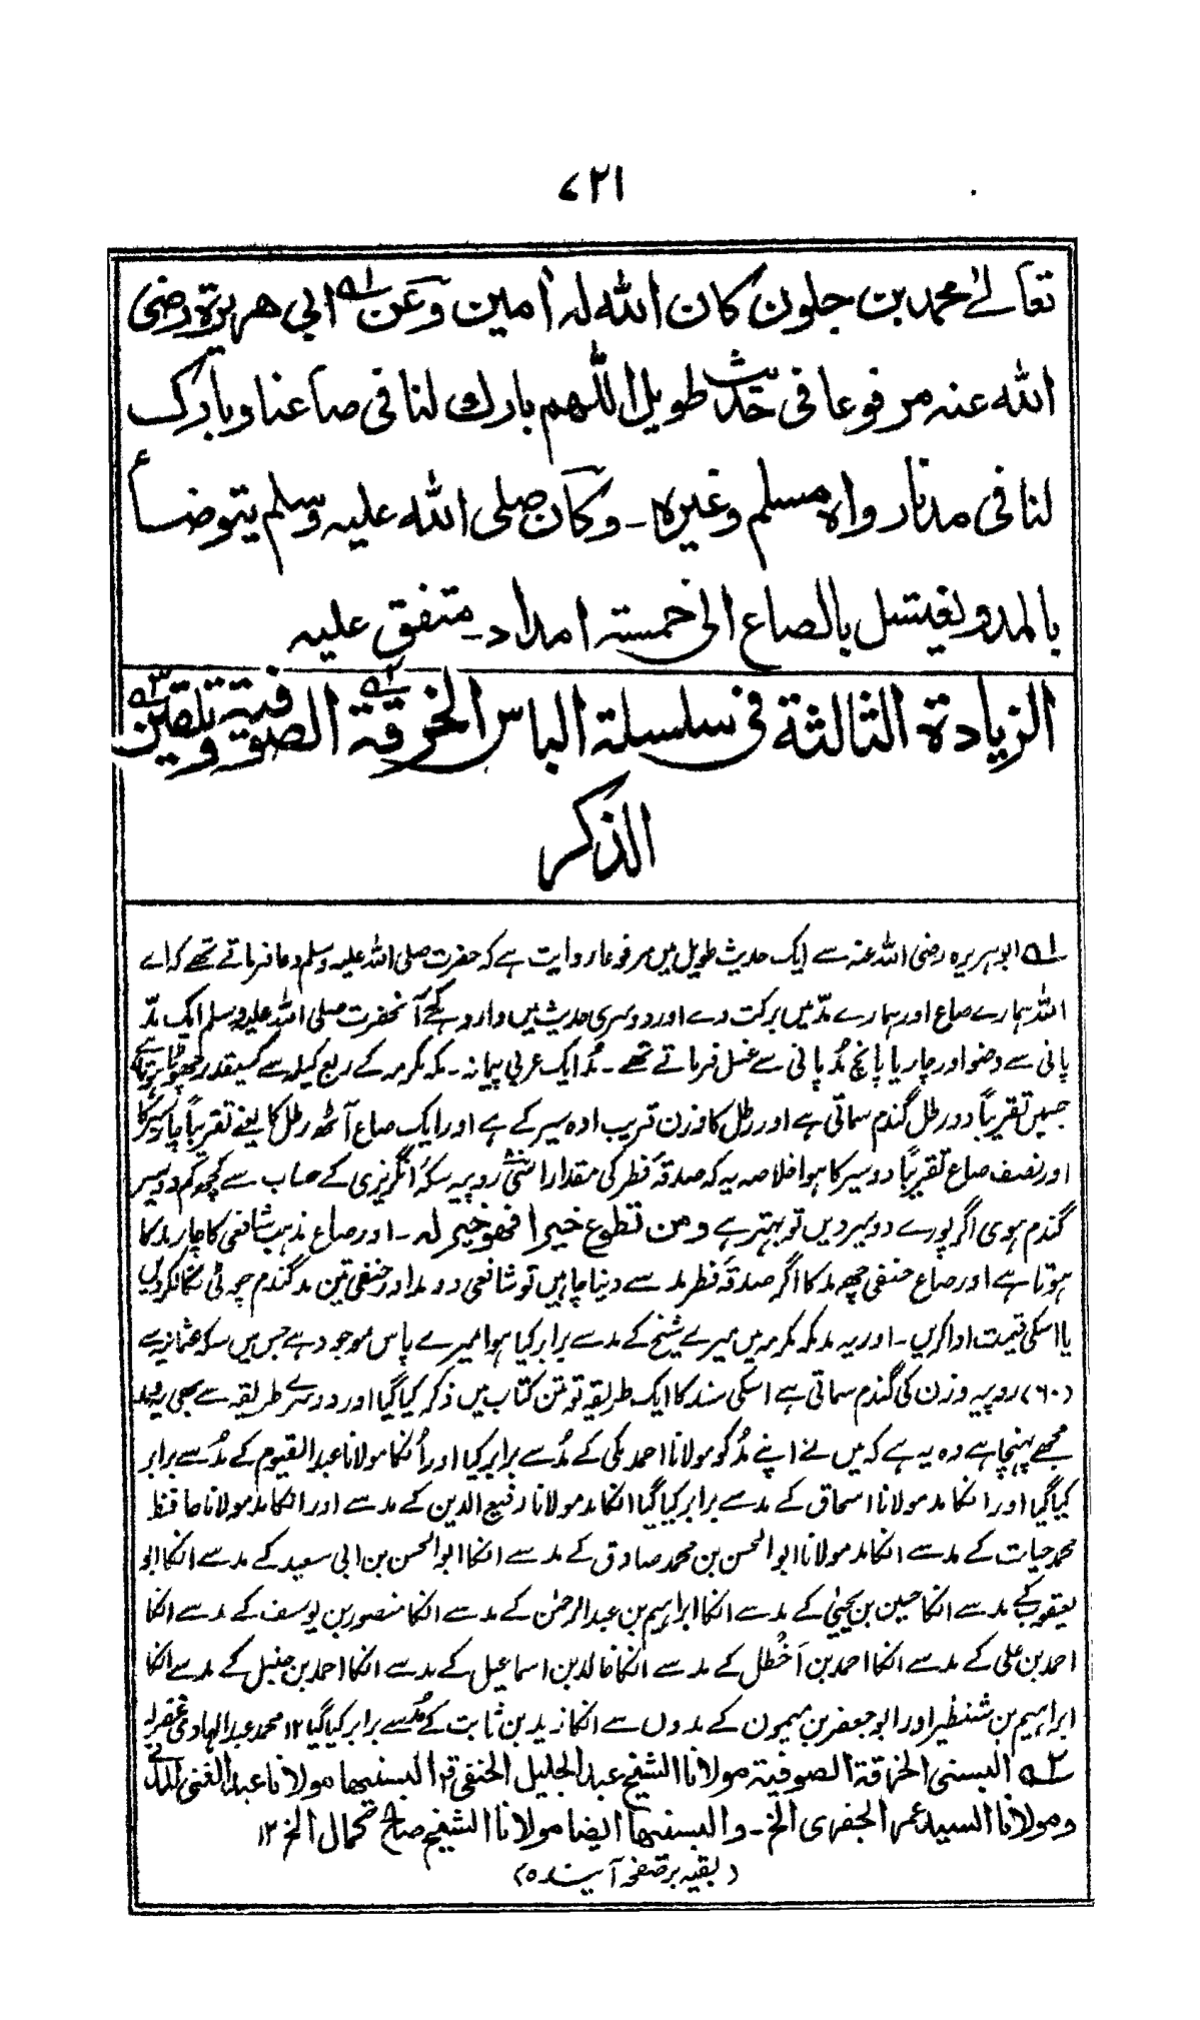 ۷۲۱
تعالےٰ محمد بن جلون كان الله له اٰمين وعن ابي هريرة رضى
الله عنه مرفوعا فى حديث طويل اللهم بارك لنا فى صاعنا وبارك
لنا فى مدنا رواه مسلم وغيره ۔ وكان صلى الله عليه وسلم يتوضأ
بالمد ويغتسل بالصاع الى خمسة امداد ۔ متفق عليه
الزيادة الثالثة فى سلسلة الباس الخرقة الصوفية وتلقين
الذكر
۱ ابوہریرہ رضی اللہ عنہ سے ایک حدیث طویل میں مرفوعا روایت ہے کہ حضرت صلی اللہ علیہ وسلم دعا فرماتے تھے کہ اے
اللہ ہمارے صاع اور ہمارے مدّ میں برکت دے اور دوسری حدیث میں وارد ہے کہ آنحضرت صلی اللہ علیہ وسلم ایک مدّ
پانی سے وضو اور چار یا پانچ مُد پانی سے غسل فرماتے تھے ۔ مُد ایک عربی پیمانہ ۔ مکہ مکرمہ کے ربع کیلہ سے کسیقدر چھوٹا ہوتا ہے
جسمیں تقریباً دو رطل گندم سماتی ہے اور رطل کا وزن قریب ادہ سیر کے ہے اور ایک صاع آٹھ رطل کا یعنے تقریباً چار سیر کا
اور نصف صاع تقریباً دو سیر کا ہوا خلاصہ یہ کہ صدقۂ فطر کی مقدار اسّی روپیہ سکۂ انگریزی کے حساب سے کچھ کم دو سیر
گندم ہوی اگر پورے دو سیر دیں تو بہتر ہے ومن تطوع خيرا فهو خير له ۔ اور صاع مذہب شافعی کا چار مد کا
ہوتا ہے اور صاع حنفی چھہ مد کا اگر صدقۂ فطر مد سے دینا چاہیں تو شافعی دو مد اور حنفی تین مد گندم چوٹی نکالکر دیں
یا اسکی قیمت ادا کریں ۔ اور یہ مد مکہ مکرمہ میں میرے شیخ کے مد سے برابر کیا ہوا میرے پاس موجود ہے جس میں سکہ عثمانیہ سے
(۶۰) روپیہ وزن کی گندم سماتی ہے اسکی سند کا ایک طریقہ تو متن کتاب میں ذکر کیا گیا اور دوسرے طریقہ سے بھی یہ مد
مجھے پہنچا ہے وہ یہ ہے کہ میں نے اپنے مُد کو مولانا احمد مکی کے مُد سے برابر کیا اور اُنکا مولانا عبد القیوم کے مُد سے برابر
کیا گیا اور انکا مد مولانا اسحاق کے مد سے برابر کیا گیا انکا مد مولانا رفیع الدین کے مد سے اور انکا مد مولانا حافظ
محمد حیات کے مد سے انکا مد مولانا ابو الحسن بن محمد صادق کے مد سے انکا ابو الحسن بن ابی سعید کے مد سے انکا ابو
یعقوب کے مد سے انکا حسین بن یحییٰ کے مد سے انکا ابراہیم بن عبد الرحمٰن کے مد سے انکا منصور بن یوسف کے مد سے انکا
احمد بن علی کے مد سے انکا احمد بن اَخْطل کے مد سے انکا خالد بن اسماعیل کے مد سے انکا احمد بن حنبل کے مد سے انکا
ابراہیم بن شنظیر اور ابو جعفر بن میمون کے مدوں سے انکا زید بن ثابت کے مُد سے برابر کیا گیا ۱۲ محمد عبد الہادی غفرلہ
۲ البسنى الخرقة الصوفية مولانا الشيخ عبد الجليل الحنفى قال البسنيها مولانا عبد الغنى المدنى
ومولانا السيد عمر الجفرى الخ ۔ والبسنيها ايضا مولانا الشيخ صالح كمال الخ ۱۲
(بقیہ بر صفحہ آیندہ)